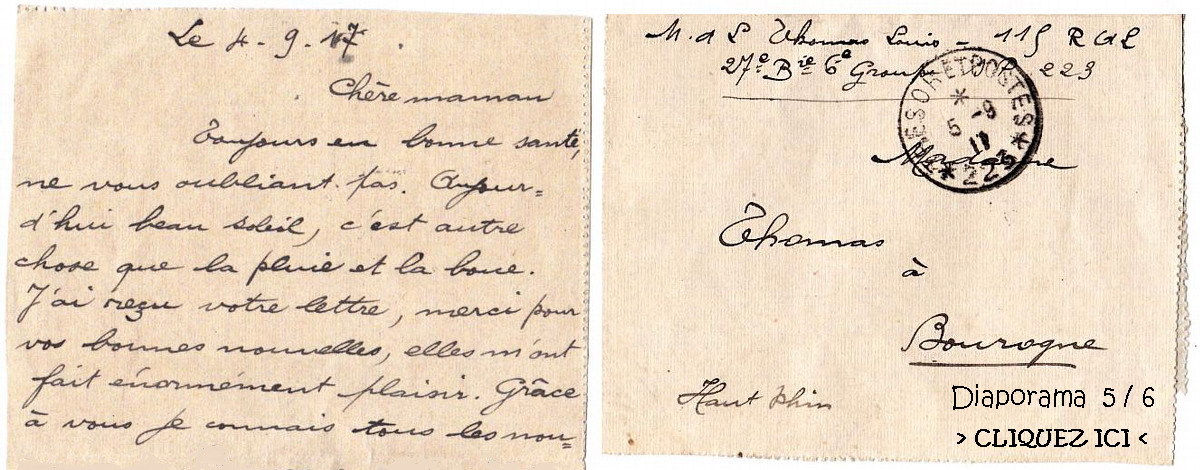 Le 4-9-17.
Chère maman
Toujours en bonne santé,
ne vous oubliant pas. Aujour=
d'hui beau soleil, c'est autre
chose que la pluie et la boue.
J'ai reçu votre lettre, merci pour
vos bonnes nouvelles, elles m'ont
fait énormément plaisir. Grâce
à vous je connais tous les nou=
M. d L Thomas Louis - 115 R A L
27e Bie 6e Groupe 223
TRESOR ET POSTES
* 5 -9 17
* 223 *
Madame
Thomas
à
Bourogne
Haut Rhin
Diaporama 5 / 6
> CLIQUEZ ICI <